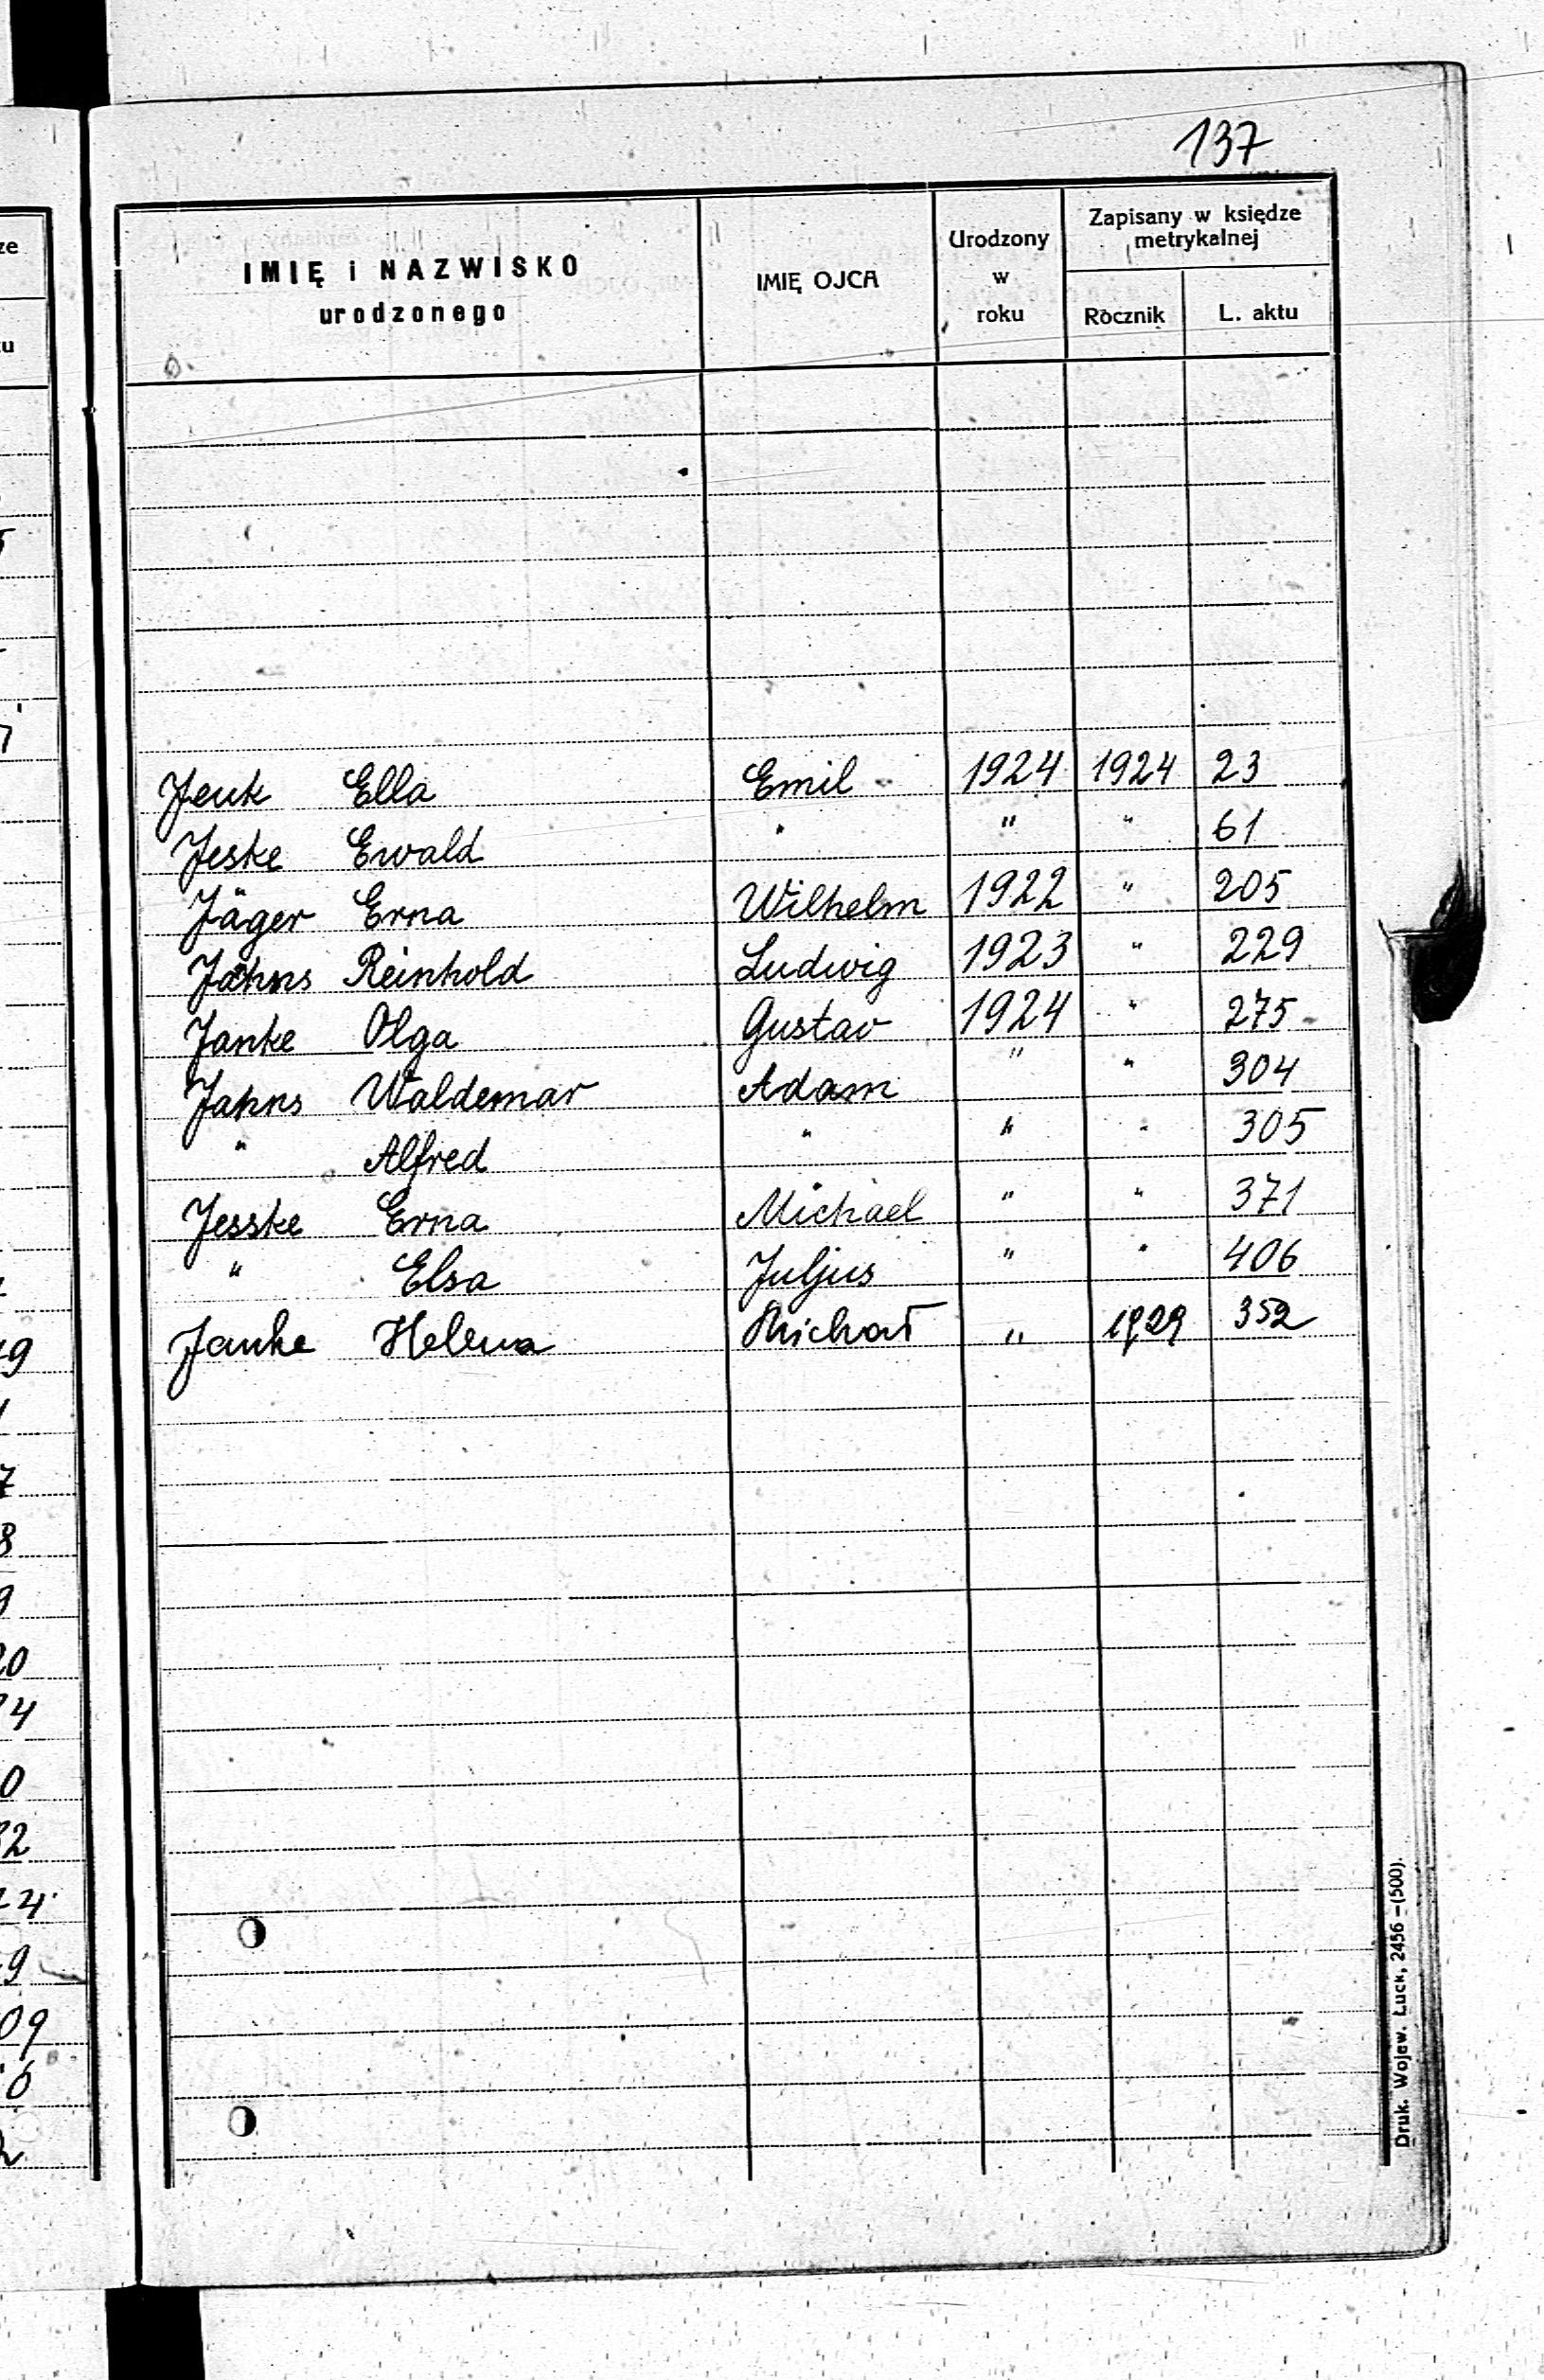 137
IMIĘ i NAZWISKO
urodzonego
IMIĘ OJCA
Urodzony
w
roku
Zapisany w księdze
metrykalnej
Rocznik
L. aktu
Jeuk Ella Emil 1924 1924 23
Jeske Ewald " " " 61
Jäger Erna Wilhelm 1922 " 205
Jahns Reinhold Ludwig 1923 " 229
Janke Olga Gustav 1924 " 275
Jahns Waldemar Adam " " 304
" Alfred " " " 305
Jesske Erna Michael " " 371
" Elsa Juljus " " 406
Janke Helena Michał " 1929 352
Druk. Wojew. Łuck, 2456 –(500).